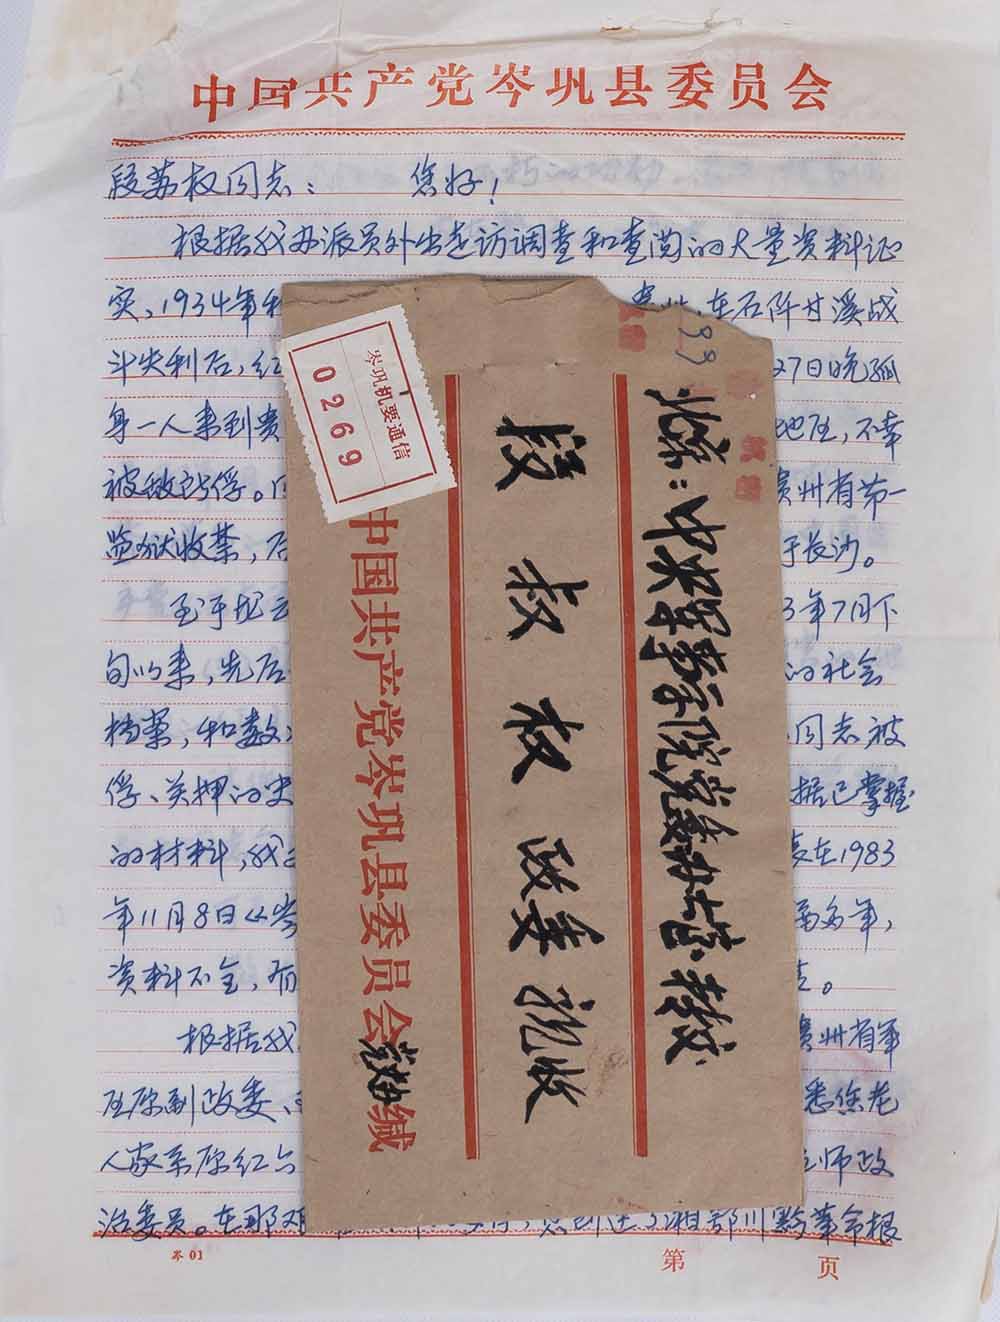 中国共产党岑巩县委员会
段苏权同志： 您好！
根据我办派员外出走访调查和查阅的大量资料证
实，1934年 在石阡甘溪战
斗失利后，红 27日晚孤
身一人来到贵 地区，不幸
被敌所俘。 贵州省第一
监狱收禁，后 于长沙。
至于 3年7月下
旬以来，先后 的社会
档案，和数 同志被
俘、关押的史 据已掌握
的材料，我 在1983
年11月8日从岑 多年，
资料不全，有
根据我 贵州省军
区原副政委、 悉您老
人家系原红六 师政
治委员。在那 湘鄂川黔革命根
岑 01
第 页
岑巩机要通信
0269
33
北京：中央军事学院党史办公室转交
段苏权政委 亲收
中国共产党岑巩县委员会党史办缄